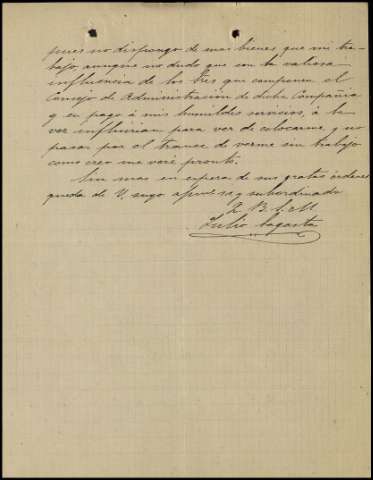 pues no dispongo de mas bienes que mi tra-
bajo, aunque no dudo que con la valiosa
influencia de los tres que componen el
Consejo de Administracion de dicha Compañia
y en pago á mis humildes servicios, á la
vez influirian para ver de colocarme y no
pasar por el trance de verme sin trabajo
como creo me veré pronto.
Sin mas en espera de sus gratas ordenes
queda de V. suyo affmo. y subordinado
Q. B. S. M.
Julio Sagasta